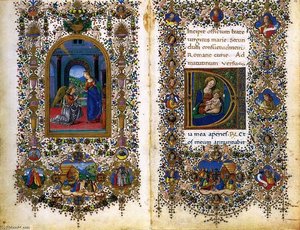 Incipit officium beate
virginis marie. Secun
dum consuetudinem
Romane curie. Ad
matutinum Versus.
D
ia mea aperies. R. Et
os meum annunciabit